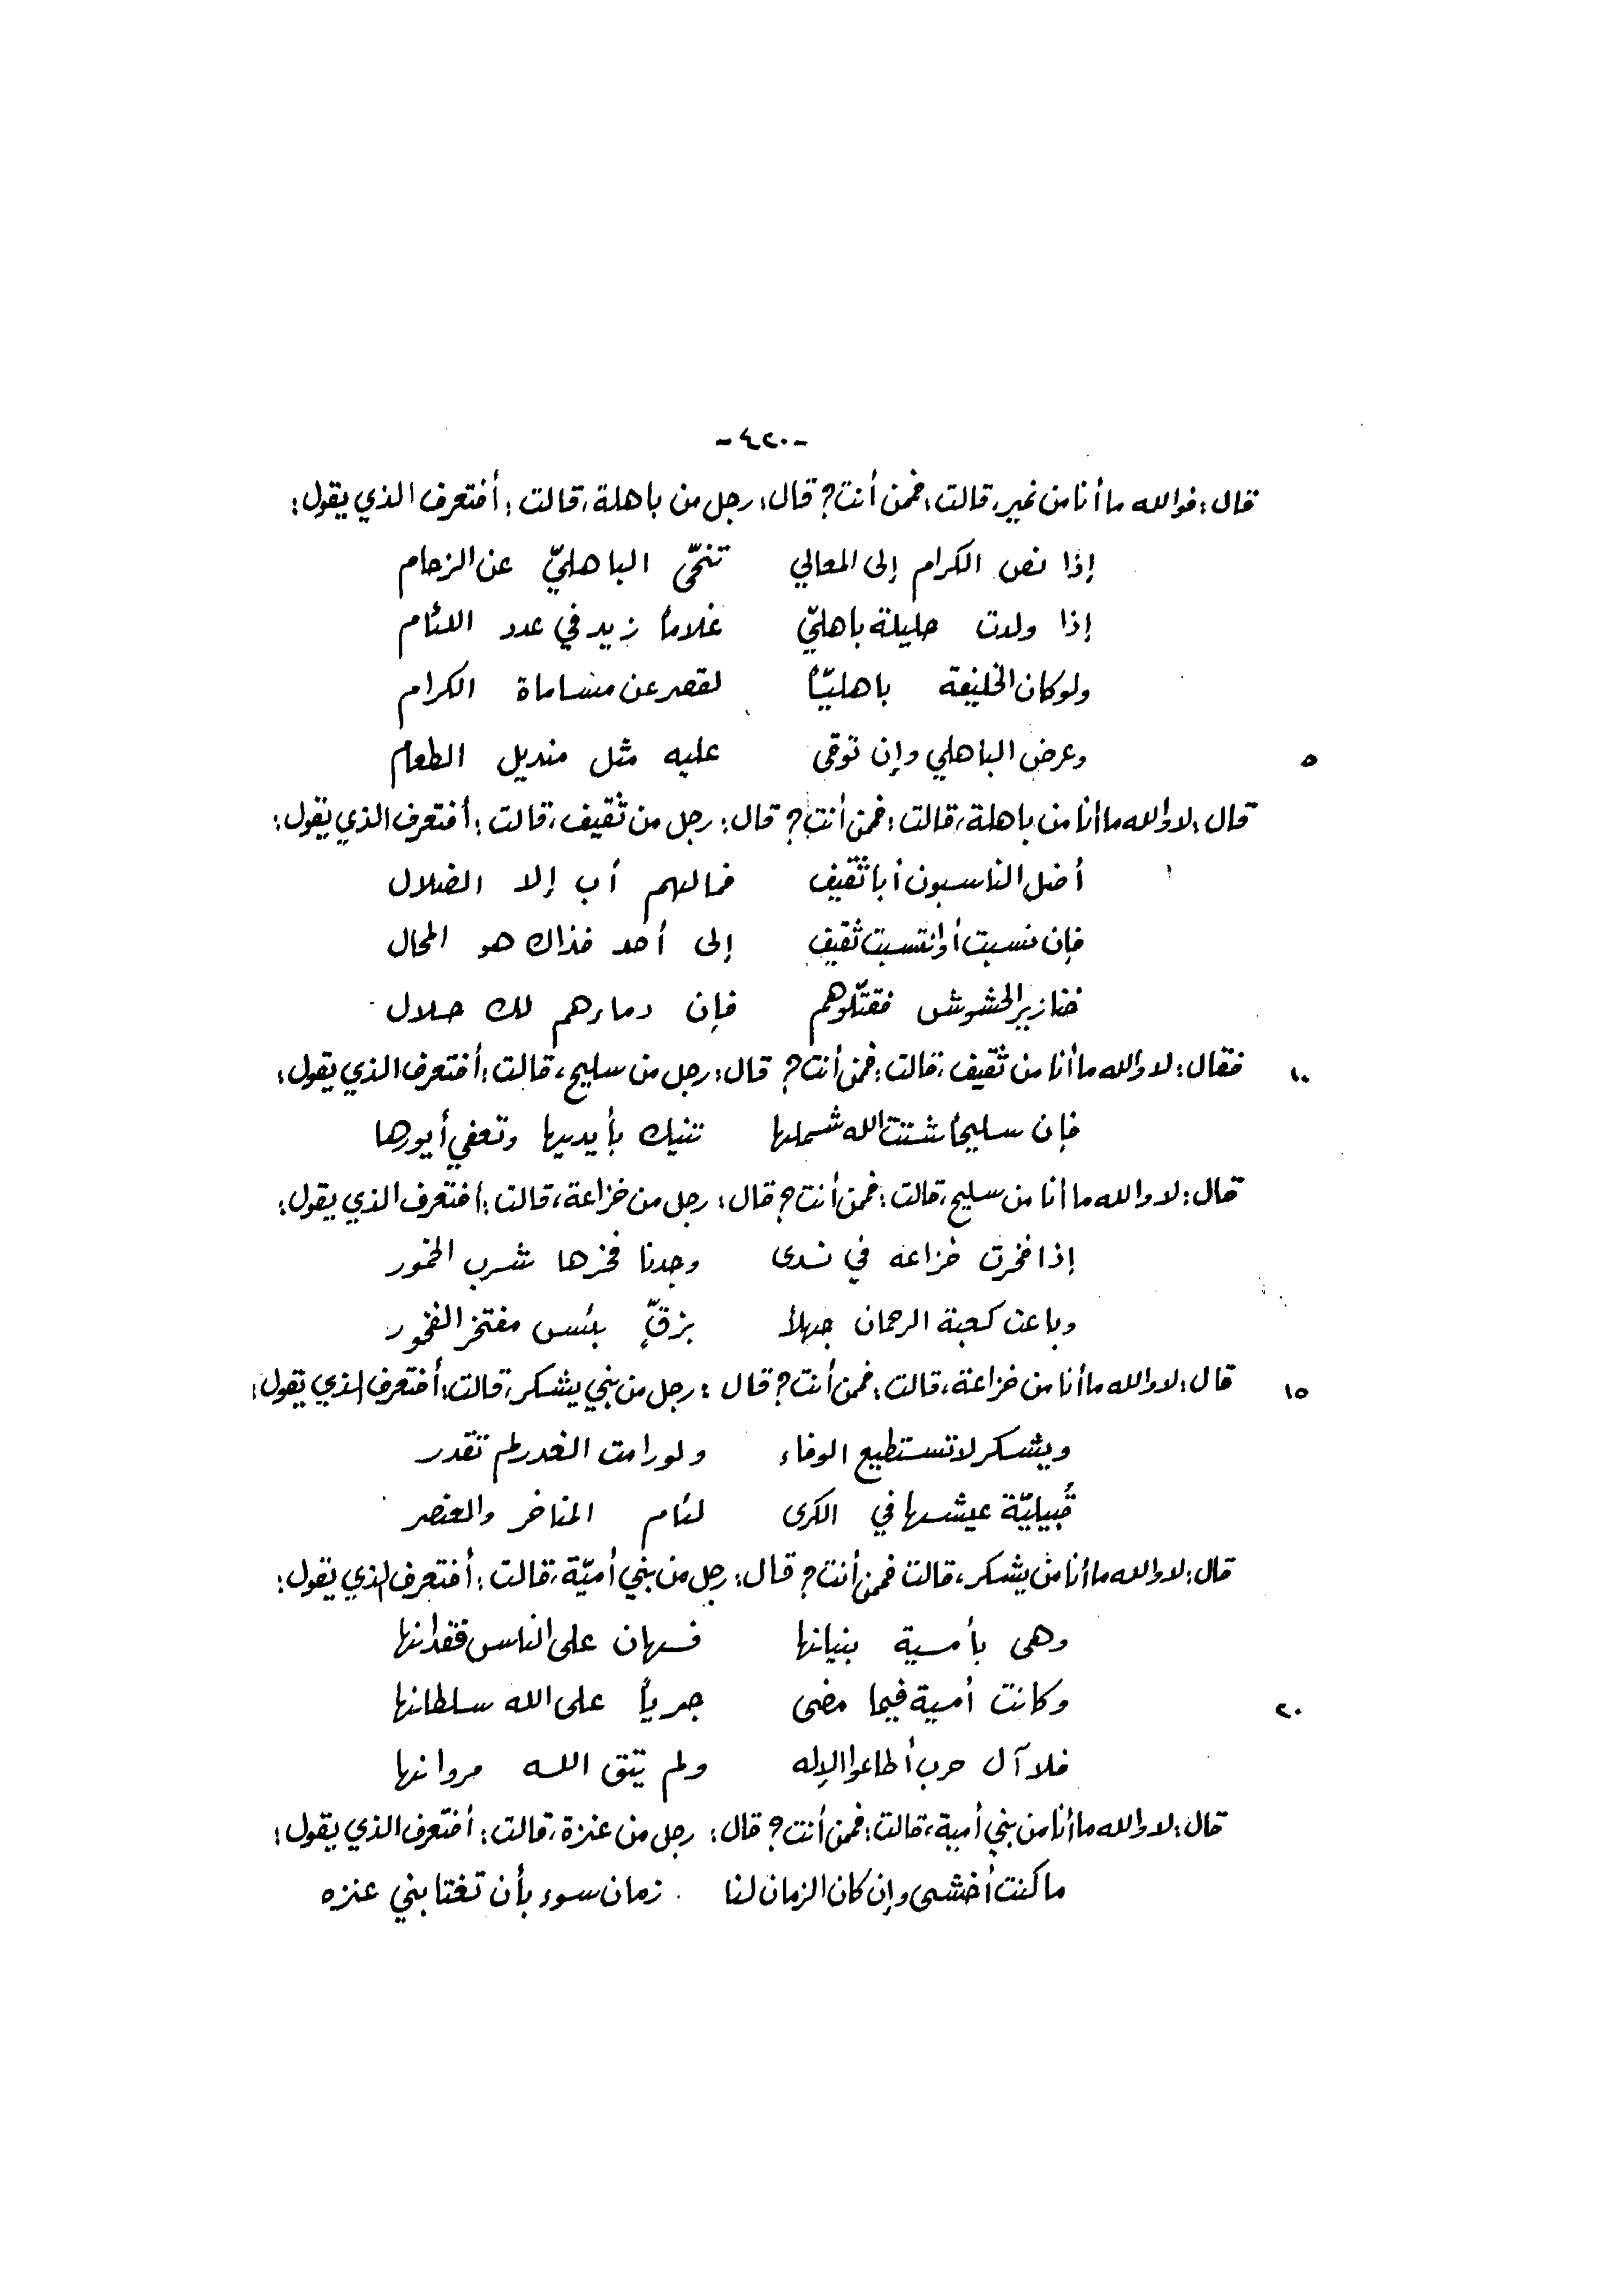 -٤٢٠-
قال: فوالله ما أنا من نمير، قالت: فممن أنت؟ قال: رجل من باهلة، قالت: أفتعرف الذي يقول:
إذا نص الكرام إلى المعالي تنحّى الباهليّ عن الزحام
إذا ولدت حليلة باهليّ غلاماً زيد في عدد اللئام
ولو كان الخليفة باهليّاً لقصر عن مساماة الكرام
٥ وعرض الباهلي وإن توقى عليه مثل منديل الطعام
قال: لا والله ما أنا من باهلة، قالت: فممن أنت؟ قال: رجل من ثقيف، قالت: أفتعرف الذي يقول:
أضل الناسبون أبا ثقيف فمالهم أب إلا الضلال
فإن نسبت أو انتسبت ثقيف إلى أحد فذاك هو المحال
خنازير الحشوش فقتّلوهم فإن دماءهم لك حلال
١٠ فقال: لا والله ما أنا من ثقيف، قالت: فممن أنت؟ قال: رجل من سليح، قالت: أفتعرف الذي يقول:
فإن سليحاً شتت الله شملها تنيك بأيديها وتعفي أيورها
قال: لا والله ما أنا من سليح، قالت: فممن أنت؟ قال: رجل من خزاعة، قالت: أفتعرف الذي يقول:
إذا فخرت خزاعه في ندى وجدنا فخرها شرب الخمور
وباعت كعبة الرحمان جهلاً بزقٍّ بئس مفتخر الفخور
١٥ قال: لا والله ما أنا من خزاعة، قالت: فممن أنت؟ قال: رجل من بني يشكر، قالت: أفتعرف الذي يقول:
ويشكر لا تستطيع الوفاء ولو رامت الغدر لم تقدر
قُبيليّة عيشها في الكرى لئام المناخر والعنصر
قال: لا والله ما أنا من يشكر، قالت فممن أنت؟ قال: رجل من بني أميّة، قالت: أفتعرف الذي يقول:
وهى بأمية بنيانها فهان على الناس فقدانها
٢٠ وكانت أمية فيما مضى جرياً على الله سلطانها
فلا آل حرب أطاعوا الإله ولم يتق الله مروانها
قال: لا والله ما أنا من بني أمية، قالت: فممن أنت؟ قال: رجل من عنزة، قالت: أفتعرف الذي يقول:
ما كنت أخشى وإن كان الزمان لنا زمان سوء بأن تغتابني عنزه